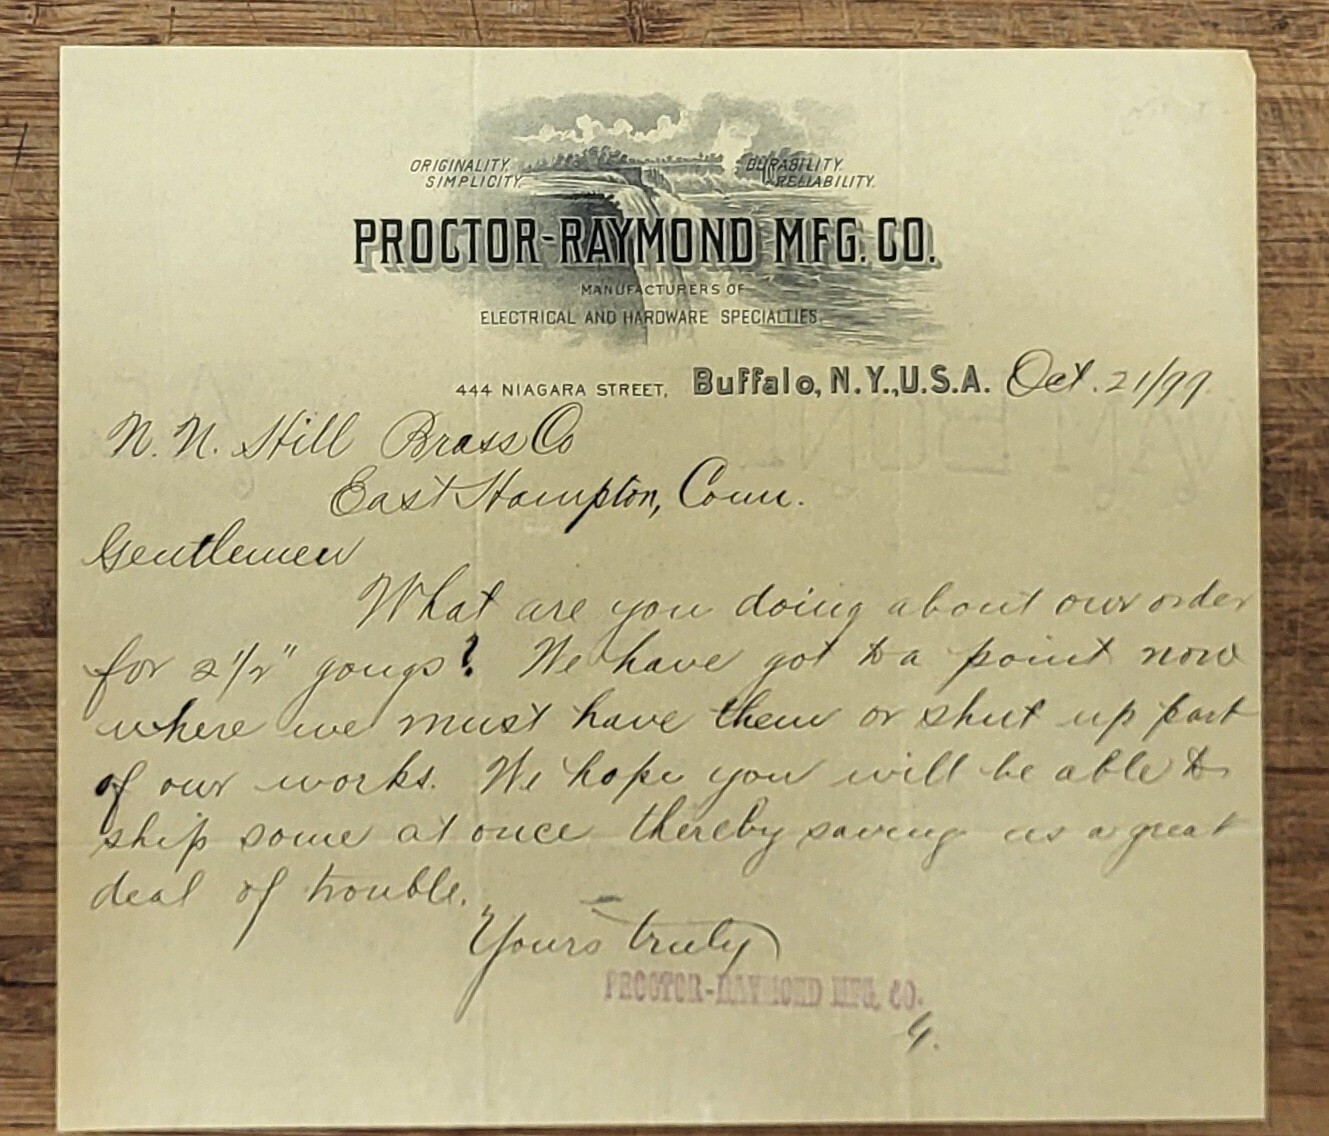 ORIGINALITY.
SIMPLICITY.
DURABILITY.
RELIABILITY.
PROCTOR-RAYMOND MFG. CO.
MANUFACTURERS OF
ELECTRICAL AND HARDWARE SPECIALTIES.
444 NIAGARA STREET, Buffalo, N.Y., U.S.A. Oct. 21/99.
N. N. Hill Brass Co
East Hampton, Conn.
Gentlemen
What are you doing about our order
for 2 1/2" gongs? We have got to a point now
where we must have them or shut up part
of our works. We hope you will be able to
ship some at once thereby saving us a great
deal of trouble.
Yours truly
PROCTOR-RAYMOND MFG. CO.